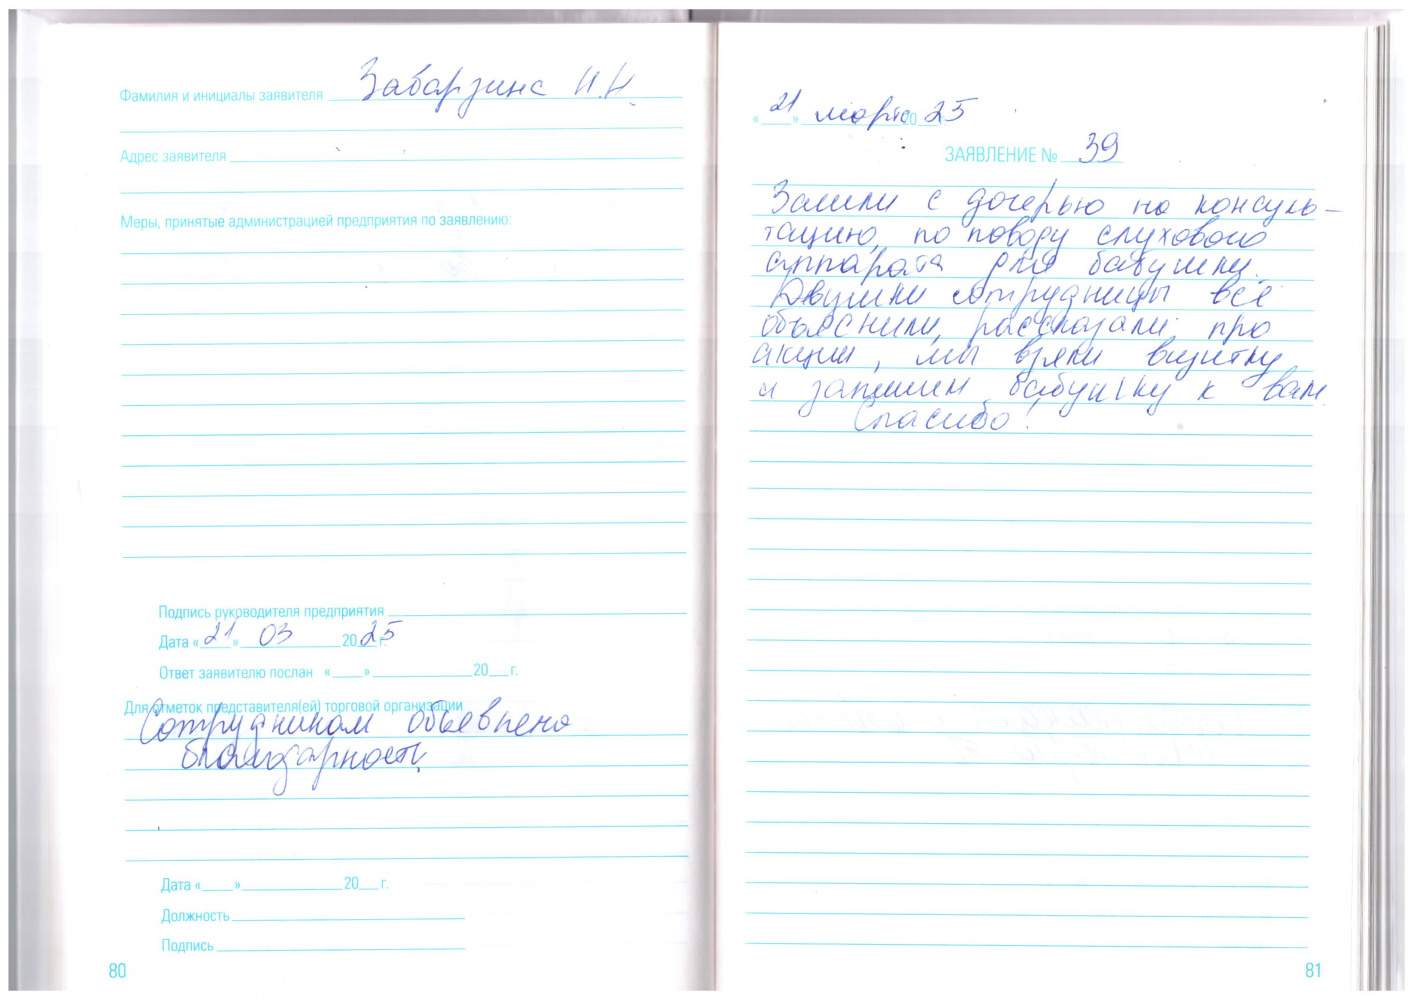 Фамилия и инициалы заявителя Забарзина Н.Н.
Адрес заявителя
Меры, принятые администрацией предприятия по заявлению:
Подпись руководителя предприятия
Дата «21» 03 2025 г.
Ответ заявителю послан «    »            20   г.
Для отметок представителя(ей) торговой организации
Сотрудникам объявлена
благодарность.
Дата «    »            20   г.
Должность
Подпись
80
«21» марта 20 25
ЗАЯВЛЕНИЕ № 39
Зашли с дочерью на консуль-
тацию, по поводу слухового
аппарата для бабушки.
Двушки сотрудницы все
объяснили, рассказали про
акции, мы взяли визитку
и запишем бабушку к вам.
Спасибо!
81